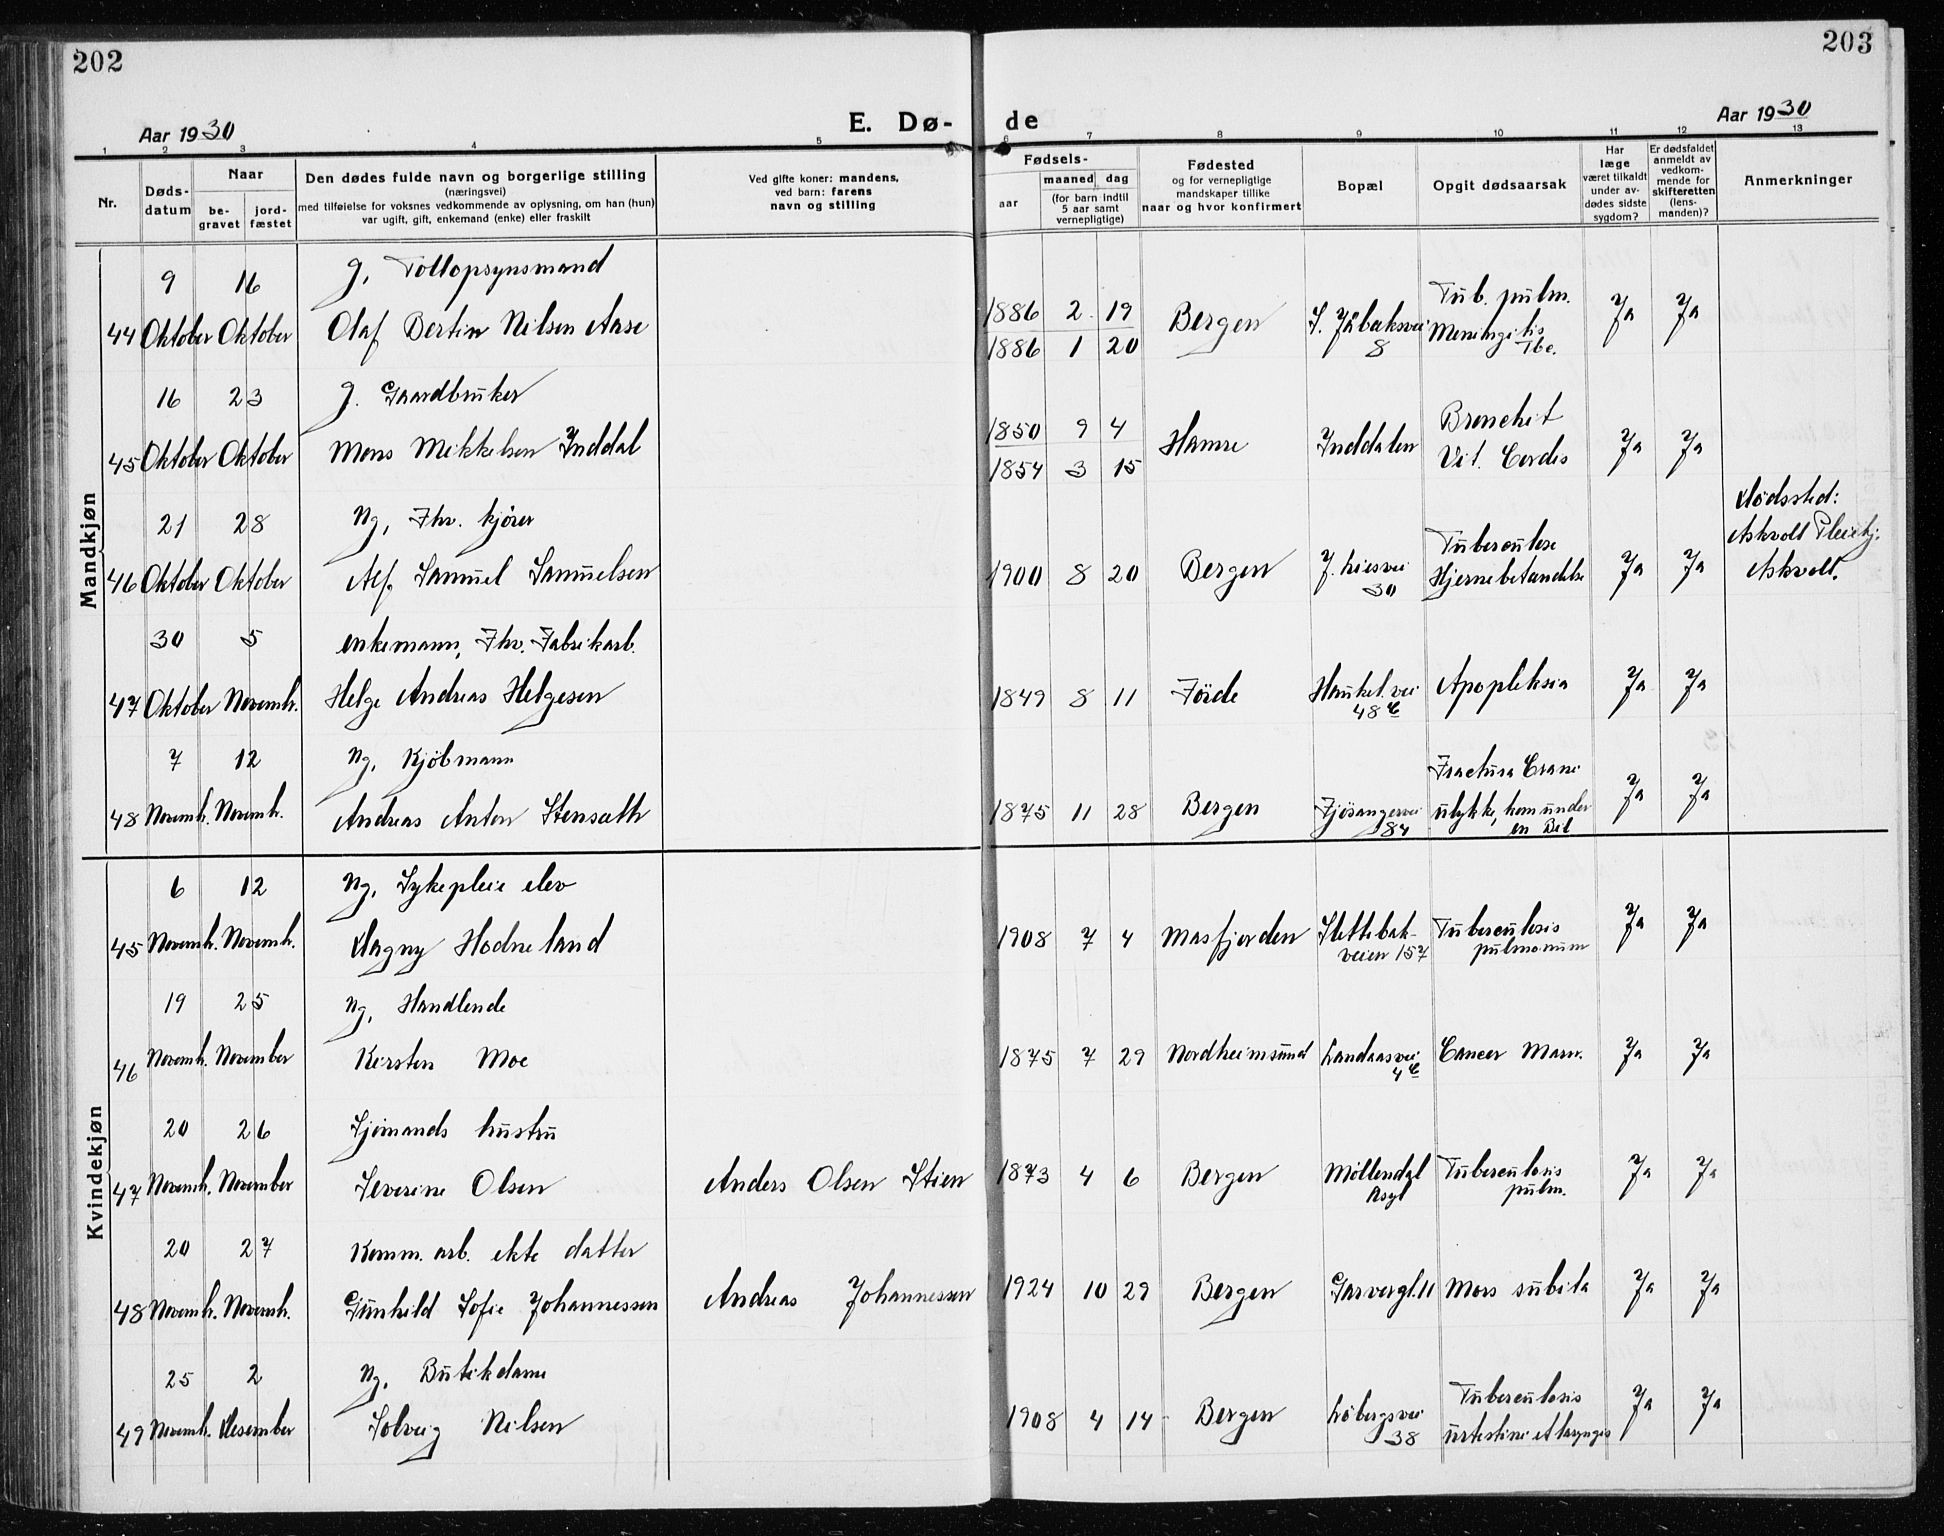 202
203
Aar 1930
E. Dø-
de
Aar 1930
1 2 3 4 5 6 7 8 9 10 11 12 13
Nr.
Døds-
datum
Naar
be-
gravet
jord-
fæstet
Den dødes fulde navn og borgerlige stilling
(næringsvei)
med tilføielse for voksnes vedkommende av oplysning, om han (hun)
var ugift, gift, enkemand (enke) eller fraskilt
Ved gifte koner: mandens,
ved barn: farens
navn og stilling
Fødsels-
aar
maaned dag
(for barn indtil
5 aar samt
vernepligtige)
Fødested
og for vernepligtige
mandskaper tillike
naar og hvor konfirmert
Bopæl
Opgit dødsaarsak
Har
læge
været tilkaldt
under av-
dødes sidste
sygdom?
Er dødsfaldet
anmeldt av
vedkom-
mende for
skifteretten
(lens-
manden)?
Anmerkninger
Mandkjøn
9 16 g, Tollopsynsmand
44 Oktober Oktober Olaf Bertin Nilsen Aase
1886 2 19
1886 1 20
Bergen
8
Tub. pulm.
Meningitis
Tbc.
Ja Ja
16 23 g. Gaardbruker
45 Oktober Oktober Mons Mikkelsen Inddal
1850 9 4
1854 3 15
Hamre
Inddalen
Bronchit
Vit. Cordis
Ja Ja
21 28 Ug, Fhv. kjører
46 Oktober Oktober Alf Samuel Samuelsen
1900 8 20
Bergen
J. Liesvei
30
Tuberculose
Hjernebetændelse
Ja Ja
Dødssted:
Askvoll Pleiehj.
Askvoll.
30 5 enkemann, Fhv. Fabrikarb.
47 Oktober Novemb. Helge Andreas Helgesen
1849 8 11
Förde
Haukel. vei
48 c
Apopleksia
Ja Ja
7 12 Ug, Kjøbmann
48 Novemb. Novemb. Andreas Anton Stensæth
1875 11 28
Bergen
Fjøsangervei
84
Fractura Crani
ulykke, kom under
en Bil
Ja Ja
Kvindekjøn
6 12 Ug, Sykepleie elev
45 Novemb. Novemb. Dagny Hodneland
1908 7 4
Masfjorden
Slettebak-
veien 157
Tuberculosis
pulmonum
Ja Ja
19 25 Ug, Handlende
46 Novemb. November Kirsten Moe
1875 7 29
Nordheimsund
Landaasvei
4 c
Cancer Mam.
Ja Ja
20 26 Sjømands hustru
47 Novemb. November Severine Olsen
Anders Olsen Stien
1873 4 6
Bergen
Møllendal
Asyl
Tuberculosis
pulm.
Ja Ja
20 27 Komm. arb. ekte datter
48 Novemb. Novemb. Gunhild Sofie Johannessen
Andreas Johannessen
1924 10 29
Bergen
Garvergt. 11
Mors subita
Ja Ja
25 2 Ug, Butikdame
49 Novemb. Desember Solveig Nilsen
1908 4 14
Bergen
Løbergsvei
38
Tuberculosis
intestini et laryngis
Ja Ja